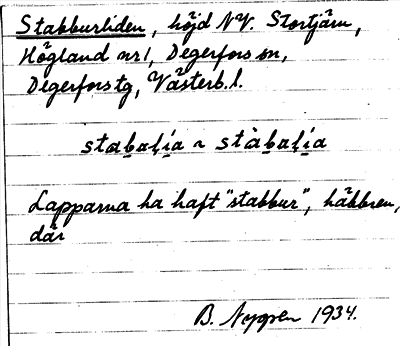 Stabburliden, höjd NV. Stortjärn,
Högland nr 1, Degerfors sn,
Degerfors tg, Västerb. l.
stabalia ~ stàbalia
Lapparna ha haft "stabbur", häbbren,
där
B. Nygren 1934.